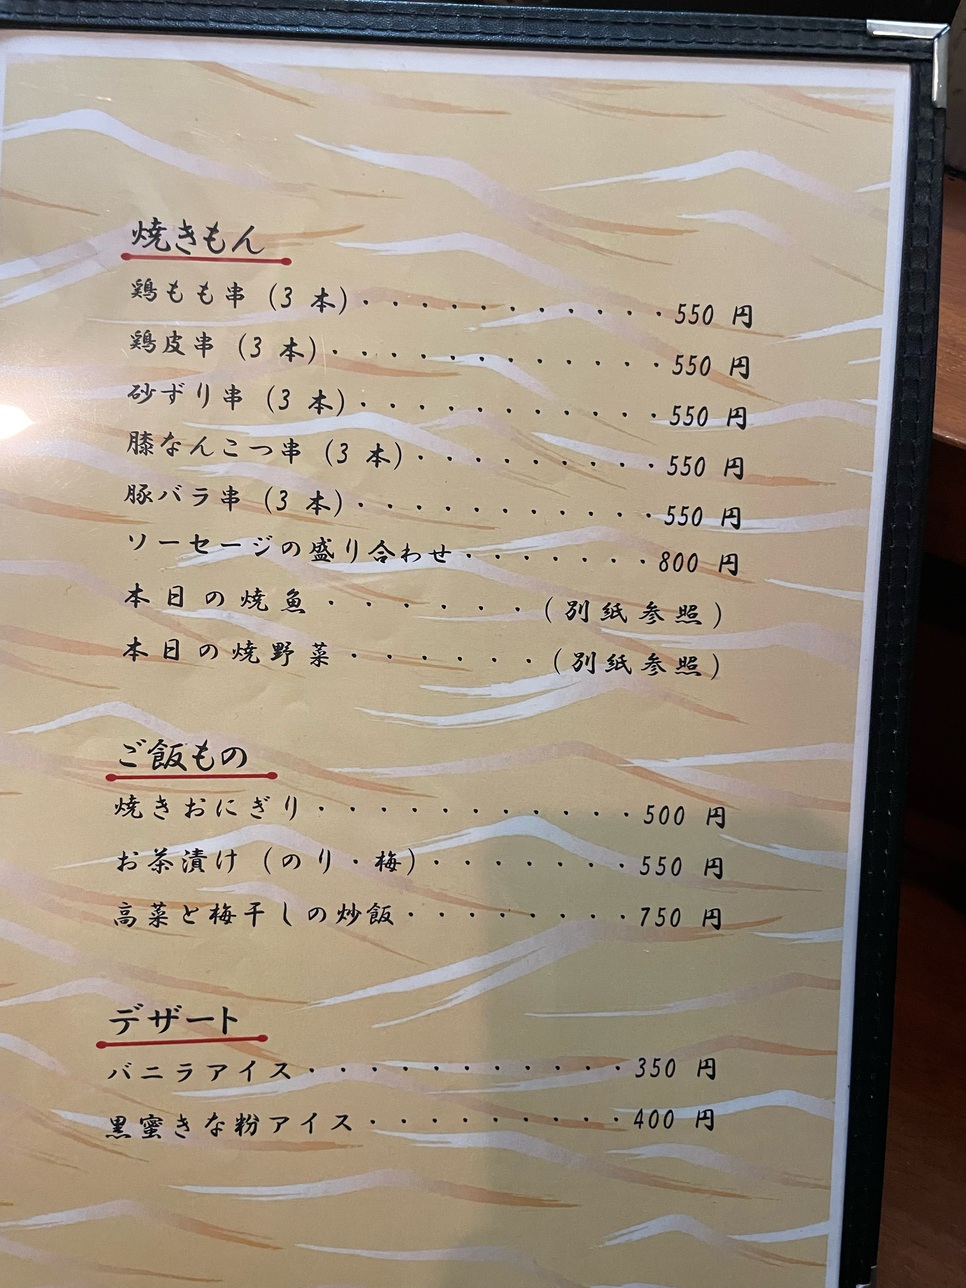 焼きもん
鶏もも串 (3 本)・・・・・・・・・・・550 円
鶏皮串 (3 本)・・・・・・・・・・・・550 円
砂ずり串 (3 本)・・・・・・・・・・・550 円
膝なんこつ串 (3 本)・・・・・・・・・550 円
豚バラ串 (3 本)・・・・・・・・・・・550 円
ソーセージの盛り合わせ・・・・・・・800 円
本日の焼魚・・・・・・・(別紙参照)
本日の焼野菜・・・・・・(別紙参照)
ご飯もの
焼きおにぎり・・・・・・・・・・・500 円
お茶漬け (のり・梅)・・・・・・・・550 円
高菜と梅干しの炒飯・・・・・・・・750 円
デザート
バニラアイス・・・・・・・・・・・350 円
黒蜜きな粉アイス・・・・・・・・・400 円